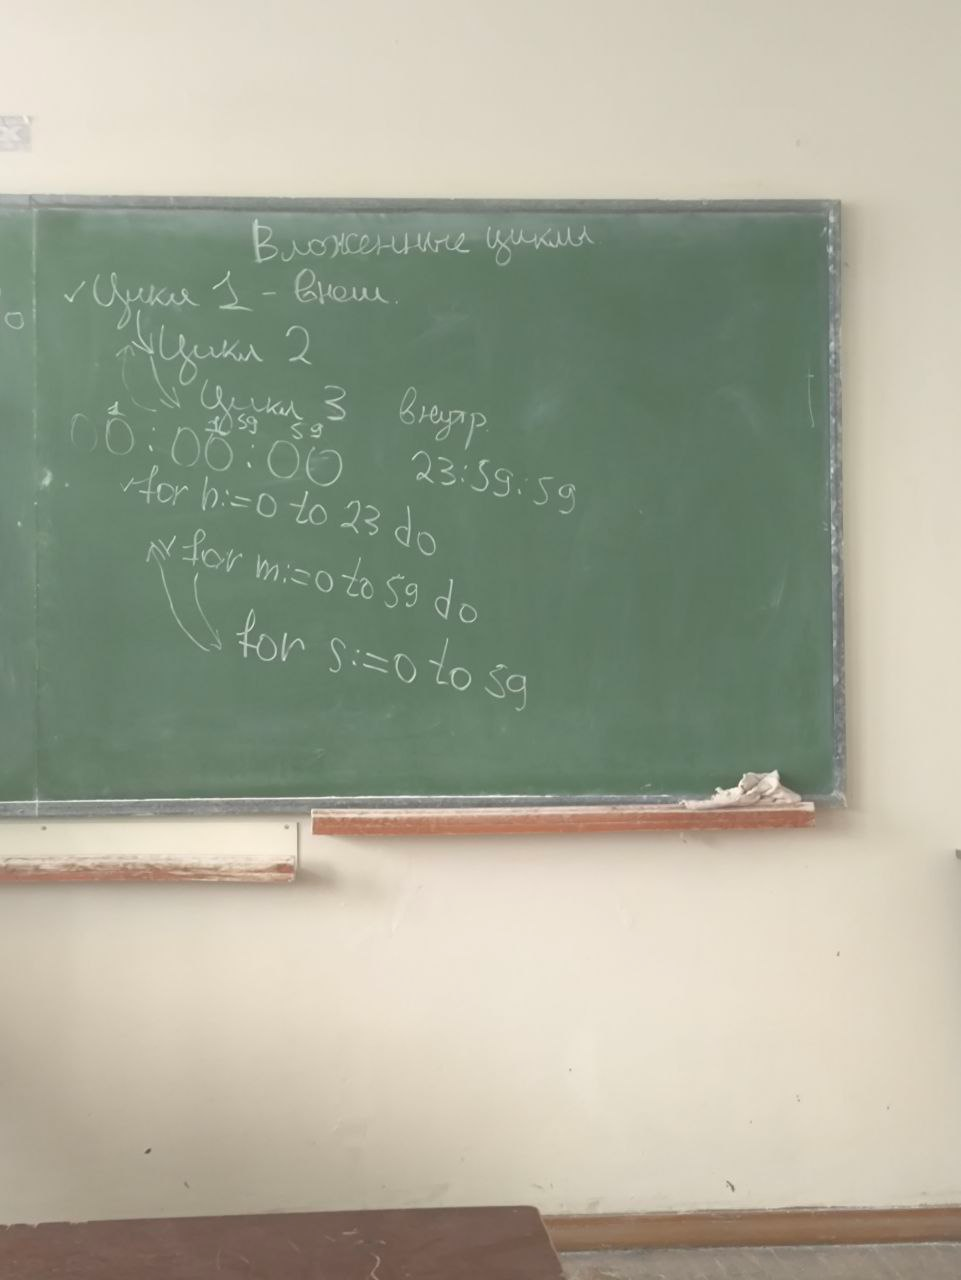 Вложенные циклы
✓ Цикл 1 - внеш.
Цикл 2
Цикл 3 внутр.
1 1 59 59
00:00:00 23:59:59
for h:=0 to 23 do
for m:=0 to 59 do
for s:=0 to 59